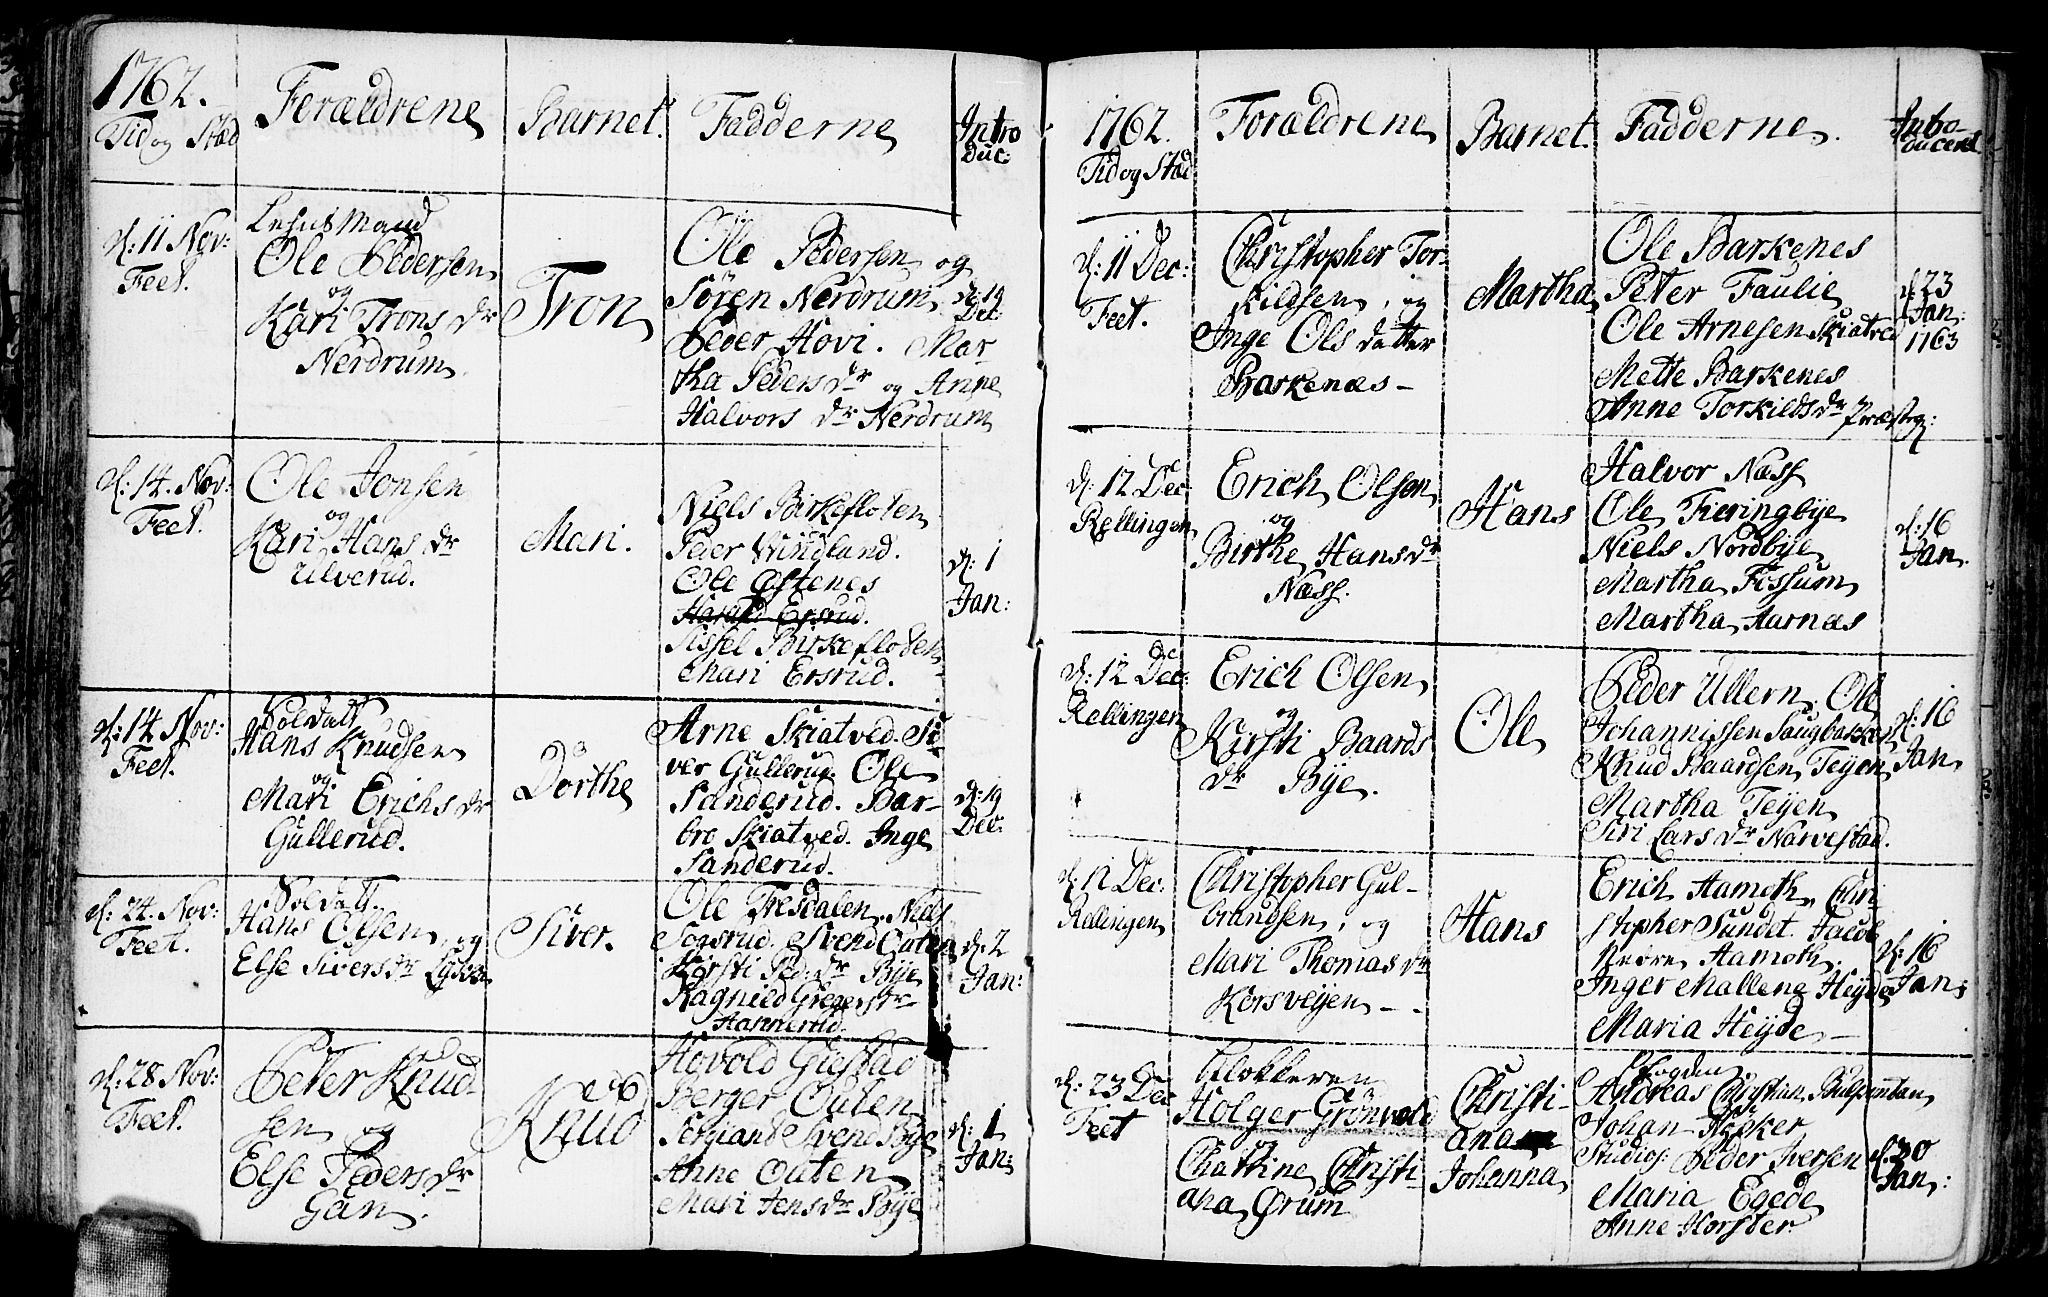 1762.
Tid og Stæd
Forældrene
Barnet.
Fadderne
Intro
duc:
d: 11 Nov:
Feet.
Lensmand
Ole Pedersen
og
Kari Trons dr
Nerdrum
Tron
Ole Pedersen og
Søren Nerdrum
Peder Hovi. Mar
tha Peders dr og Anne
Halvors dr Nerdrum
d: 19
Dec:
d: 14. Nov:
Feet.
Ole Jonsen
og
Kari Hans dr
Ulverud.
Mari.
Niels Birkefloten
Peder Vundland.
Ole Østenes
Harald Ersrud.
Sissel Birkefloden
Mari Ersrud.
d: 1
Jan:
d: 14 Nov:
Feet.
Soldatt
Hans Knudsen
og
Mari Erichs dr
Gullerud.
Dorthe
Arne Skiatved. Si
ver Gullerud. Ole
Sanderud. Bar-
bro Skiatved. Inge
Sanderud.
d: 19
Dec:
d: 24. Nov:
Feet.
Soldatt.
Hans Olsen, og
Else Sivers dr
Siver.
Ole Tresdalen, Niels
Sogsrud. Svend Outen
Kirsti Ped: dr Bye
Ragnild Gregers dr
Hammerud.
d: 2
Jan:
d: 28 Nov:
Feet.
Peter Knud-
sen og
Else Peders dr
Gan.
Knud
Hovold Giestad
Berger Outen
Sergiant Svend Bye
Anne Outen
Mari Jens dr Bye
d: 1
Jan:
1762.
Tid og Stæd
Forældrene
Barnet.
Fadderne.
Intro-
duceret
d: 11 Dec:
Feet.
Christopher Tor-
kildsen, og
Inge Ols datter
Barkenæs -
Martha
Ole Barkenes
Peter Faulie
Ole Arnesen Skiatved
Mette Barkenes
Anne Torkilds dr Præstg:
d: 23
Jan:
1763
d: 12 Dec
Rællingen
Erich Olsen
og
Birthe Hans dr
Næss.
Hans
Halvor Næss
Ole Tieringbye
Niels Nordbye
Martha Fossum
Martha Aarnæs
d: 16
Jan.
d: 12 Dec:
Rællingen
Erich Olsen
og
Kirsti Baards
dr Bye.
Ole
Peder Ullern, Ole
Johannissen Saugbakken
Knud Baardsen Teyen
Martha Teyen
Siri Lars dr Narvestad.
d: 16
Jan
d: 12 Dec:
Rællingen
Christopher Gul-
brandsen, og
Mari Thomas dr
Korsveyen -
Hans
Erich Aamoth, Chri
stopher Sundet. Jacob
Aamoth.
Inger Mallene Heyde
Maria Heyde -
d: 16
Jan:
d: 23 Dec
Feet
Klokkeren
Holger Grönvold
og
Chattrine Christi-
ana Ørum
Christi-
ana
Johanna
Fogden
Andreas Christian
Johan
Studios: Peder Iversen
Maria Egede
Anne Horster
d: 30
Jan: